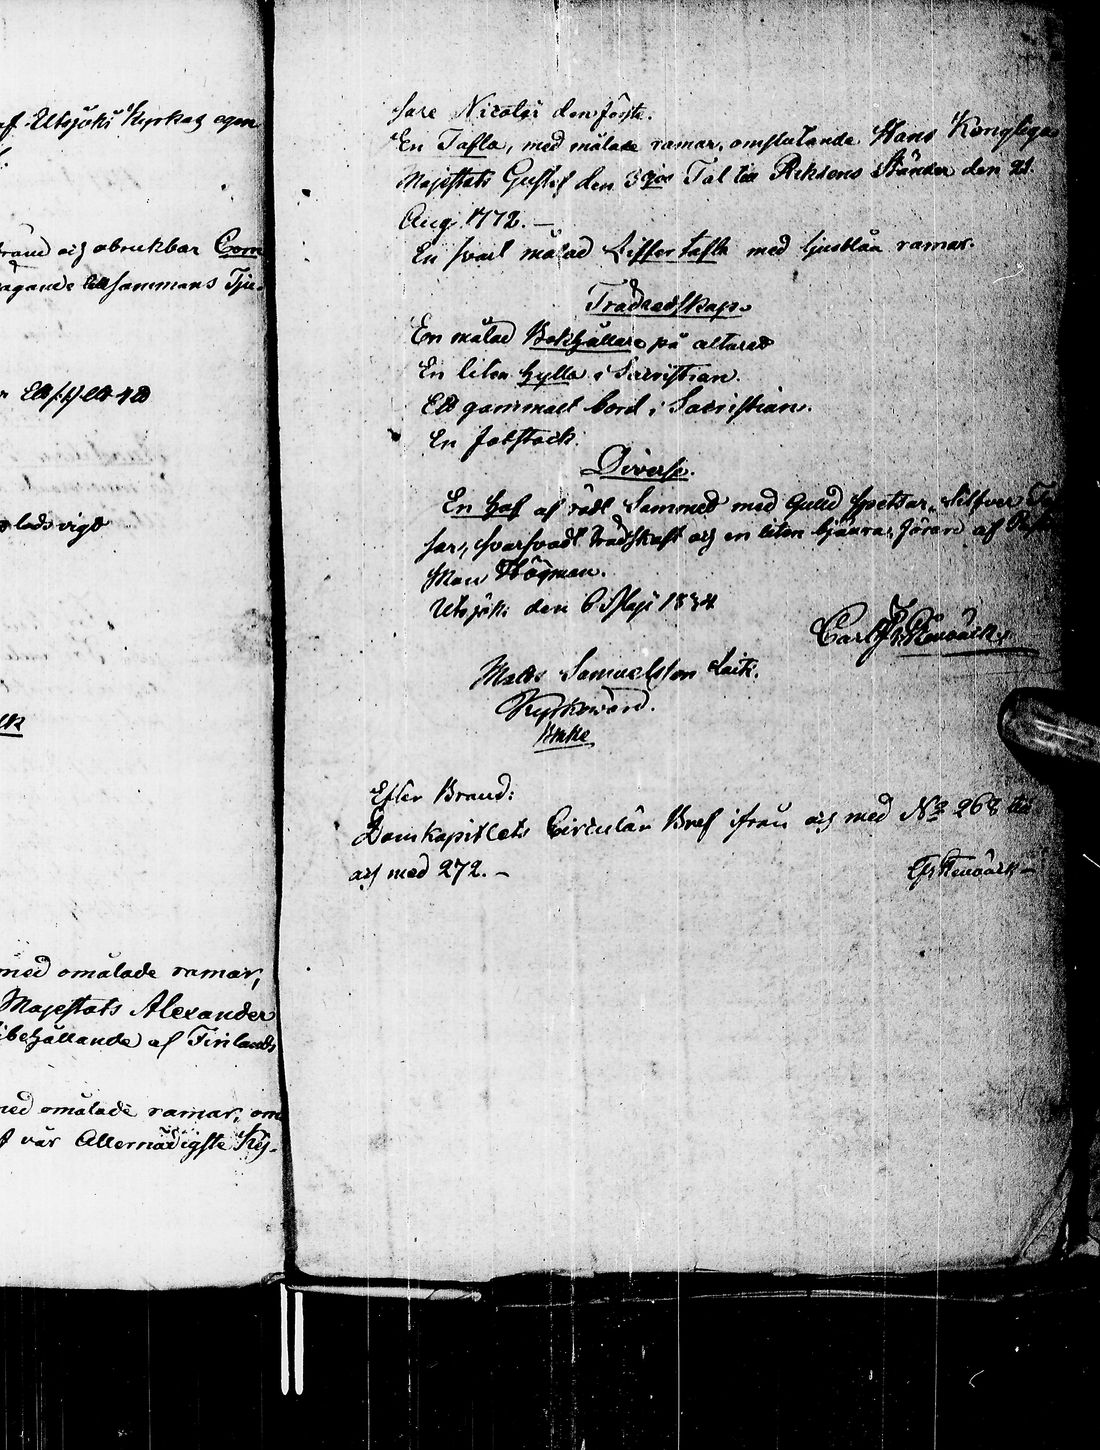 af Utsjoki Kyrkas egen
och obrukbar
tillsammans
lods vigt
med omålade ramar,
Majestäts Alexander
bibehållande af Finlands
med omålade ramar, om
vår Allernådigste Kej-
sare Nicolai den förste.
En Tafla, med målade ramar, omfatande Hans Kongliga
Majestäts Gustaf den 3djes Tal till Riksens Ständer den 21
Aug. 1772. —
En svart målad Siffertafla med ljusblåa ramar.
Trädredskap.
En målad Bokhållare på altaret
En liten hylla i Sacristian.
Ett gammalt bord i Sacristian.
En fotstock.
Diverse.
En Haf af rödt Sammet med Guld Spetsar, Silfver
sar, svarfvadt trädskaft och en liten
Utsjoki den 6 Maji 1834
Carl
Matts Samuelsson Laiti.
Kyrkovärd.
Efter Brand:
Domkapitlets Circulär Bref ifrån och med No 268 till
och med 272. —